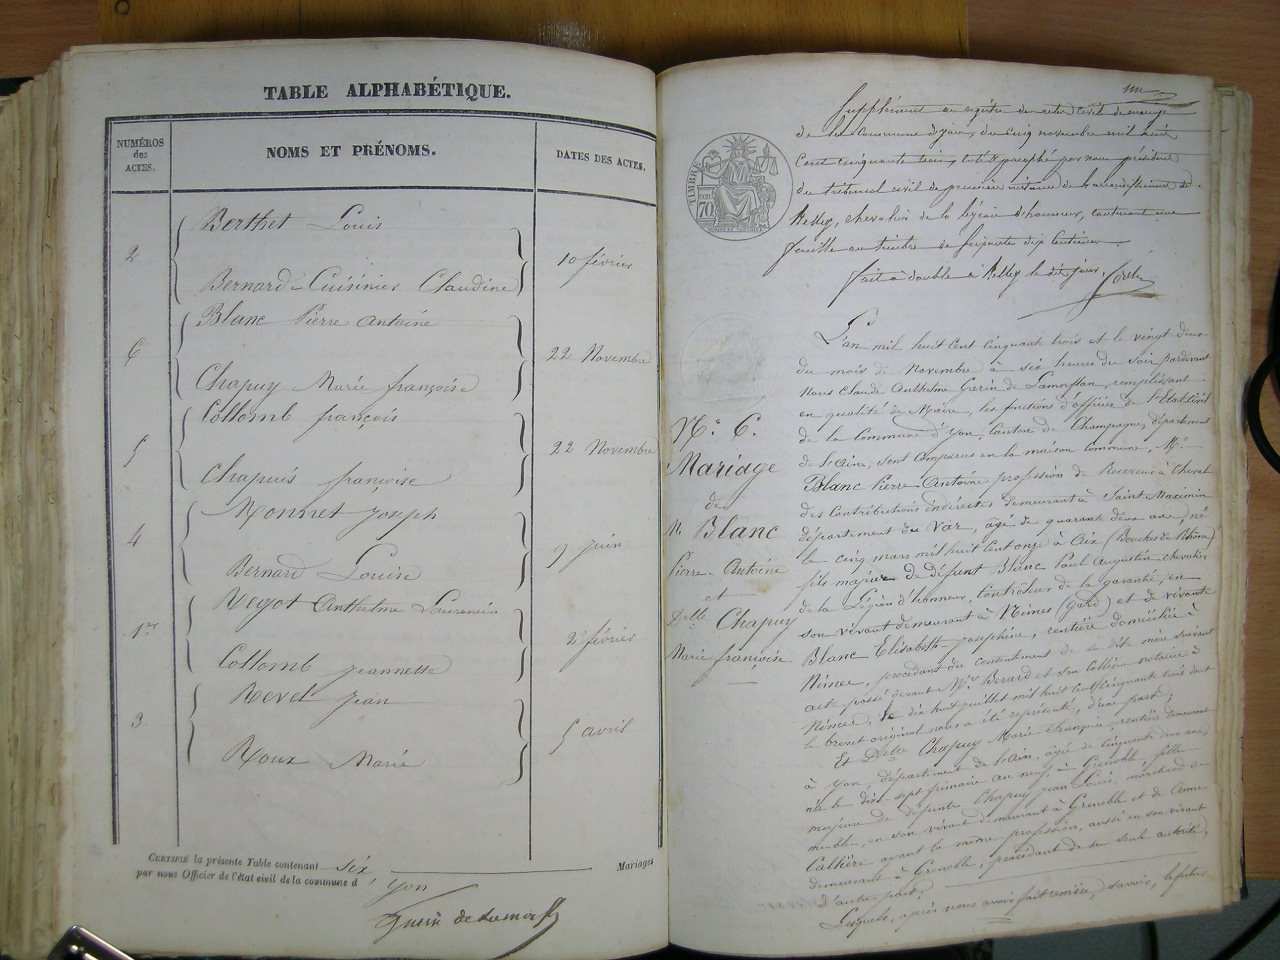 TABLE ALPHABÉTIQUE.
NUMÉROS des ACTES.
NOMS ET PRÉNOMS.
DATES DES ACTES.
2
Berthet Louis
Bernard-Cuisinier Claudine
10 février
6
Blanc Pierre Antoine
Chapuy Marie françoise
22 Novembre
5
Collomb françois
Chapuis françoise
22 Novembre
4
Monnet Joseph
Bernard Louise
9 juin
1er
Collomb Jeannette
février
3
Revel Jean
Roux Marie
5 avril
CERTIFIÉ la présente Table contenant six Mariages
par nous Officier de l'état civil de la commune d'yon
TIMBRE
70
Supplément au régitre de
de la Commune d'yon, du cinq novembre mil huit
Cent cinquante trois, coté & paraphé par nous président
du tribunal civil de première instance de l'arrondissement de
Belley, chevalier de la légion d'honneur, contenant une
feuille au timbre de soixante dix centimes.
fait à double à Belley le dit jour.
L'an mil huit Cent Cinquante trois et le vingt deux
du mois de Novembre à six heures du soir pardevant
Nous Claude Anthelme remplissant
en qualité de Maire, les fonctions d'officier de l'Etat Civil
de la Commune d'yon, Canton de Champagne, département
de l'ain, sont comparus en la maison commune, Mr
Blanc Pierre-Antoine profession de Receveur à Cheval
des Contributions indirectes demeurant à Saint Maximin
département du Var, âgé de quarante deux ans, né
le cinq mars mil huit Cent onze à Aix (Bouches du Rhône)
fils majeur de défunt Blanc Paul Augustin chevalier
de la Légion d'honneur, Contrôleur de la garantie, en
son vivant demeurant à Nimes (gard) et de vivante
Blanc Elisabeth Josephine, rentière domiciliée à
Nimes, procédant du consentement de sa dite mère suivant
acte passé devant Me et son Collègue notaires à
Nimes, le dix huit juillet mil huit Cent Cinquante trois dont
le brevet original nous a été représenté, d'une part;
Et Delle Chapuy Marie françoise, rentière demeurant
à yon, département de l'Ain, âgée de Cinquante
née le dix sept frimaire an neuf à Grenoble, fille
majeure de défunts Chapuy Jean Louis, marchand de
meubles, en son vivant demeurant à Grenoble et de Anne
ayant la même profession, aussi en son vivant
demeurant à Grenoble, procédant de sa seule autorité,
d'autre part;
Lesquels, après nous avoir fait remise, savoir, le futur
No 6.
Mariage
de
Mr Blanc
Pierre-Antoine
et
Delle Chapuy
Marie françoise